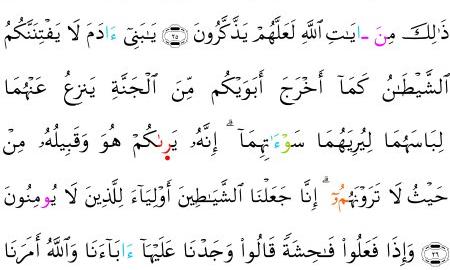 ذَٰلِكَ مِنَ ـَايَٰتِ ٱللَّهِ لَعَلَّهُمْ يَذَّكَّرُونَ ٢٥ يَٰبَنِىٓ ءَادَمَ لَا يَفْتِنَنَّكُمُ
ٱلشَّيْطَٰنُ كَمَآ أَخْرَجَ أَبَوَيْكُم مِّنَ ٱلْجَنَّةِ يَنزِعُ عَنْهُمَا
لِبَاسَهُمَا لِيُرِيَهُمَا سَوْءَٰتِهِمَآ ۗ إِنَّهُۥ يَرَىٰكُمْ هُوَ وَقَبِيلُهُۥ مِنْ
حَيْثُ لَا تَرَوْنَهُمُۥٓ ۗ إِنَّا جَعَلْنَا ٱلشَّيَٰطِينَ أَوْلِيَآءَ لِلَّذِينَ لَا يُومِنُونَ
٢٦ وَإِذَا فَعَلُوا۟ فَٰحِشَةً قَالُوا۟ وَجَدْنَا عَلَيْهَآ ءَابَآءَنَا وَٱللَّهُ أَمَرَنَا